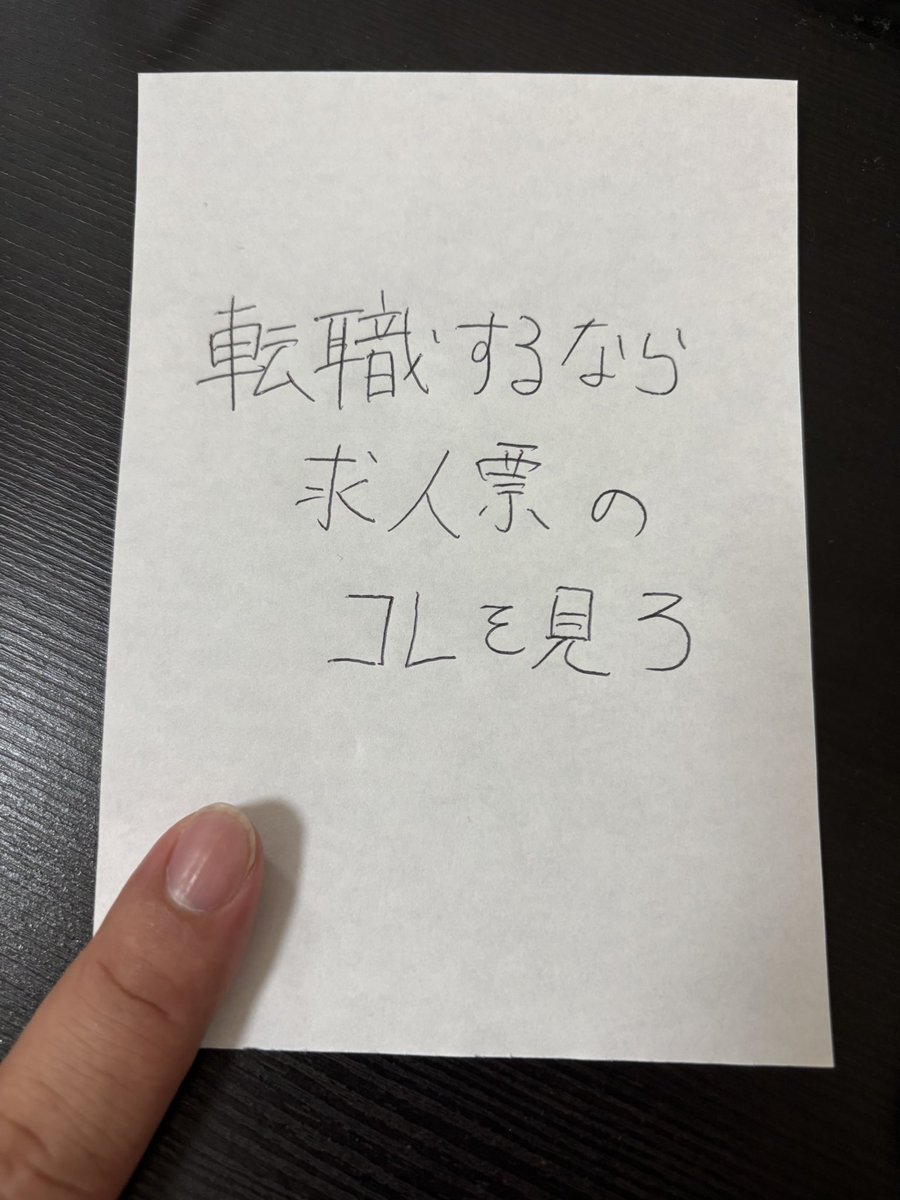 転職するなら
求人票の
コレを見ろ